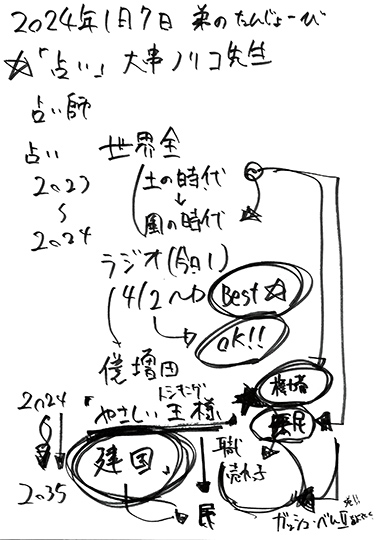 2024年1月7日 弟のたんじょーび
☆「占い」大串ノリコ先生
占い師
占い 世界全
2023
〜
2024
土の時代
↓
風の時代
ラジオ(今日!)
4/2〜
Best☆
OK!!
僕増田
トンキング
2024
「やさしい王様」
権力者
庶民
建国
職
売れ子
2035
民
ガッシュ・ベルⅡ